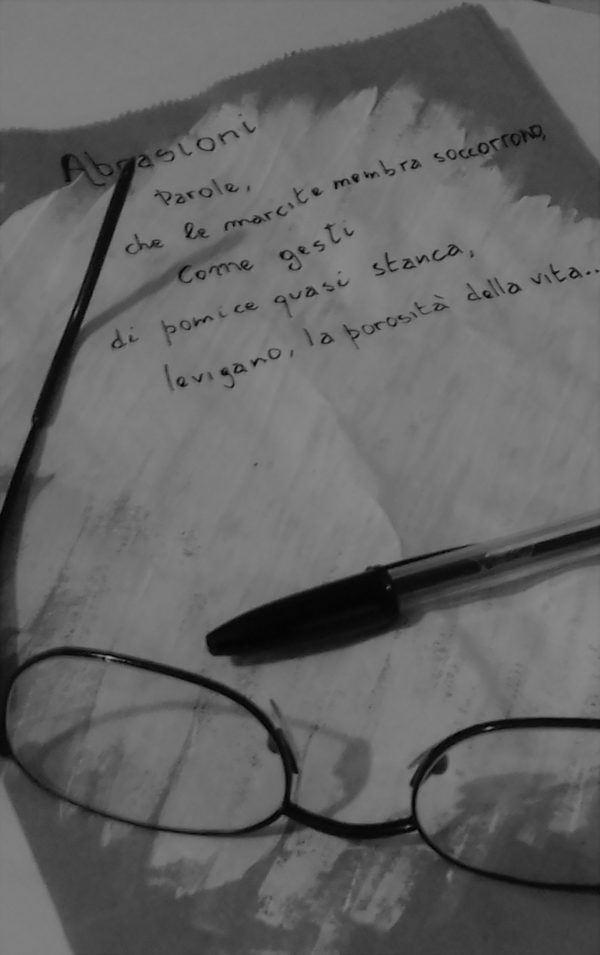 Abrasioni
Parole,
che le marcite membra soccorrono,
Come gesti
di pomice quasi stanca,
levigano, la porosità della vita..